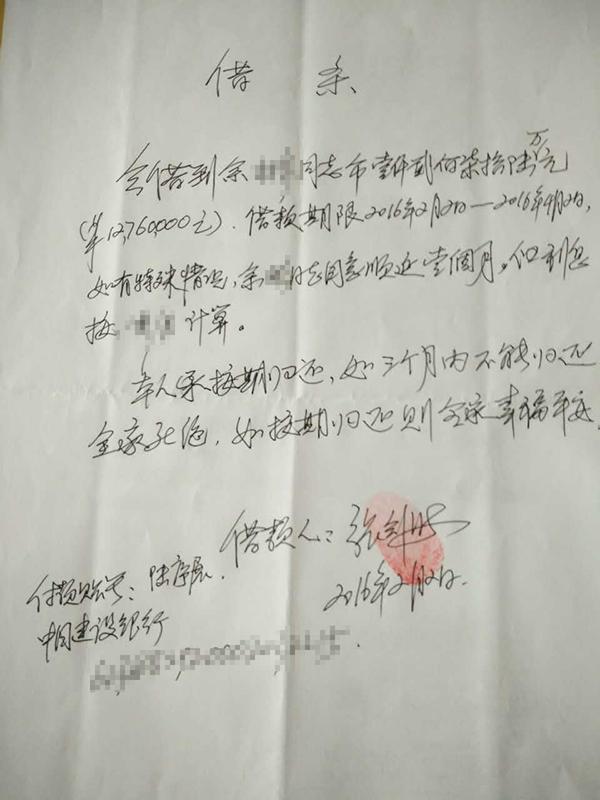 借条
今借到余 同志币壹仟 佰柒拾陆万元
(¥12,760,000元). 借款期限2016年2月2日—2016年4月2日,
如有特殊情况,余 同意顺延壹個月,但利息
按 计算。
本人承 按期归还,如三个月内不能归还
全家死绝,如按期归还则全家幸福平安.
借款人: 张
2016年2月2日.
付款账号: 陆
中国建设银行